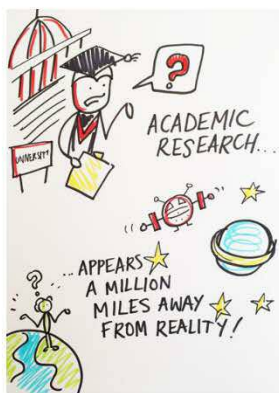 ?
UNIVERSITY
ACADEMIC
RESEARCH...
?
...APPEARS
A MILLION
MILES AWAY
FROM REALITY!